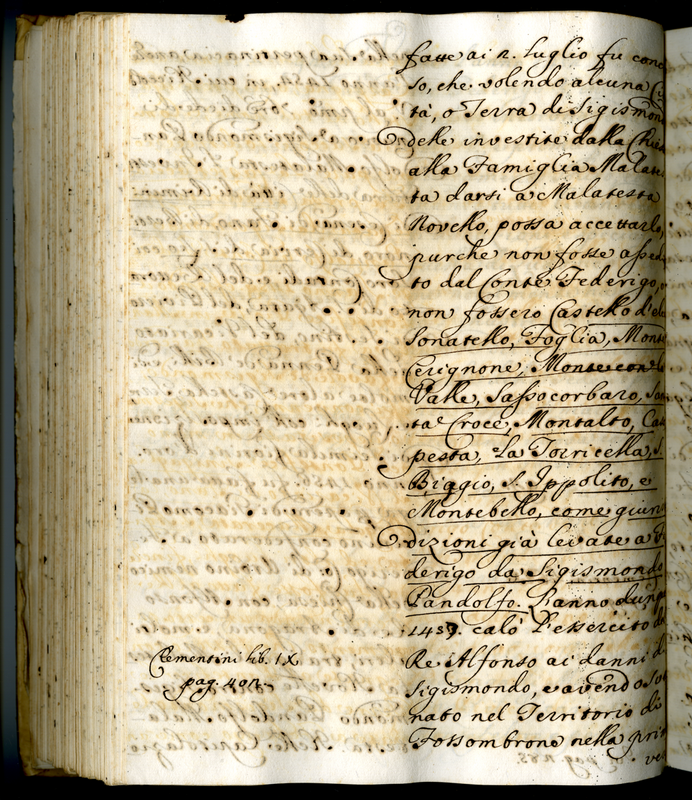 fatte ai 2. luglio fu conc
so, che volendo alcuna Cit
tà, o Terra di Sigismon
delle investite dalla Chie
alla Famiglia Malate
ta darsi a Malatesta
Novello, possa accettarlo,
purche non fosse assed
to dal Conte Federigo, o
non fossero Castello d'el
Sonatello, Foglia, Monte
Cerignone, Monte
Valle, Sassocorbaro, San
ta Croce, Montalto, Cam
pesta, La Torricella, S.
Biaggio, S. Ippolito, e
Montebello, come giuris
dizioni già levate a Fe
derigo da Sigismondo
Pandolfo. L'anno dunq
1457. calò l'esercito del
Clementini lib. IX
pag. 402.
Re Alfonso ai danni di
Sigismondo, e avendo sver
nato nel Territorio di
Fossombrone nella prim
ve